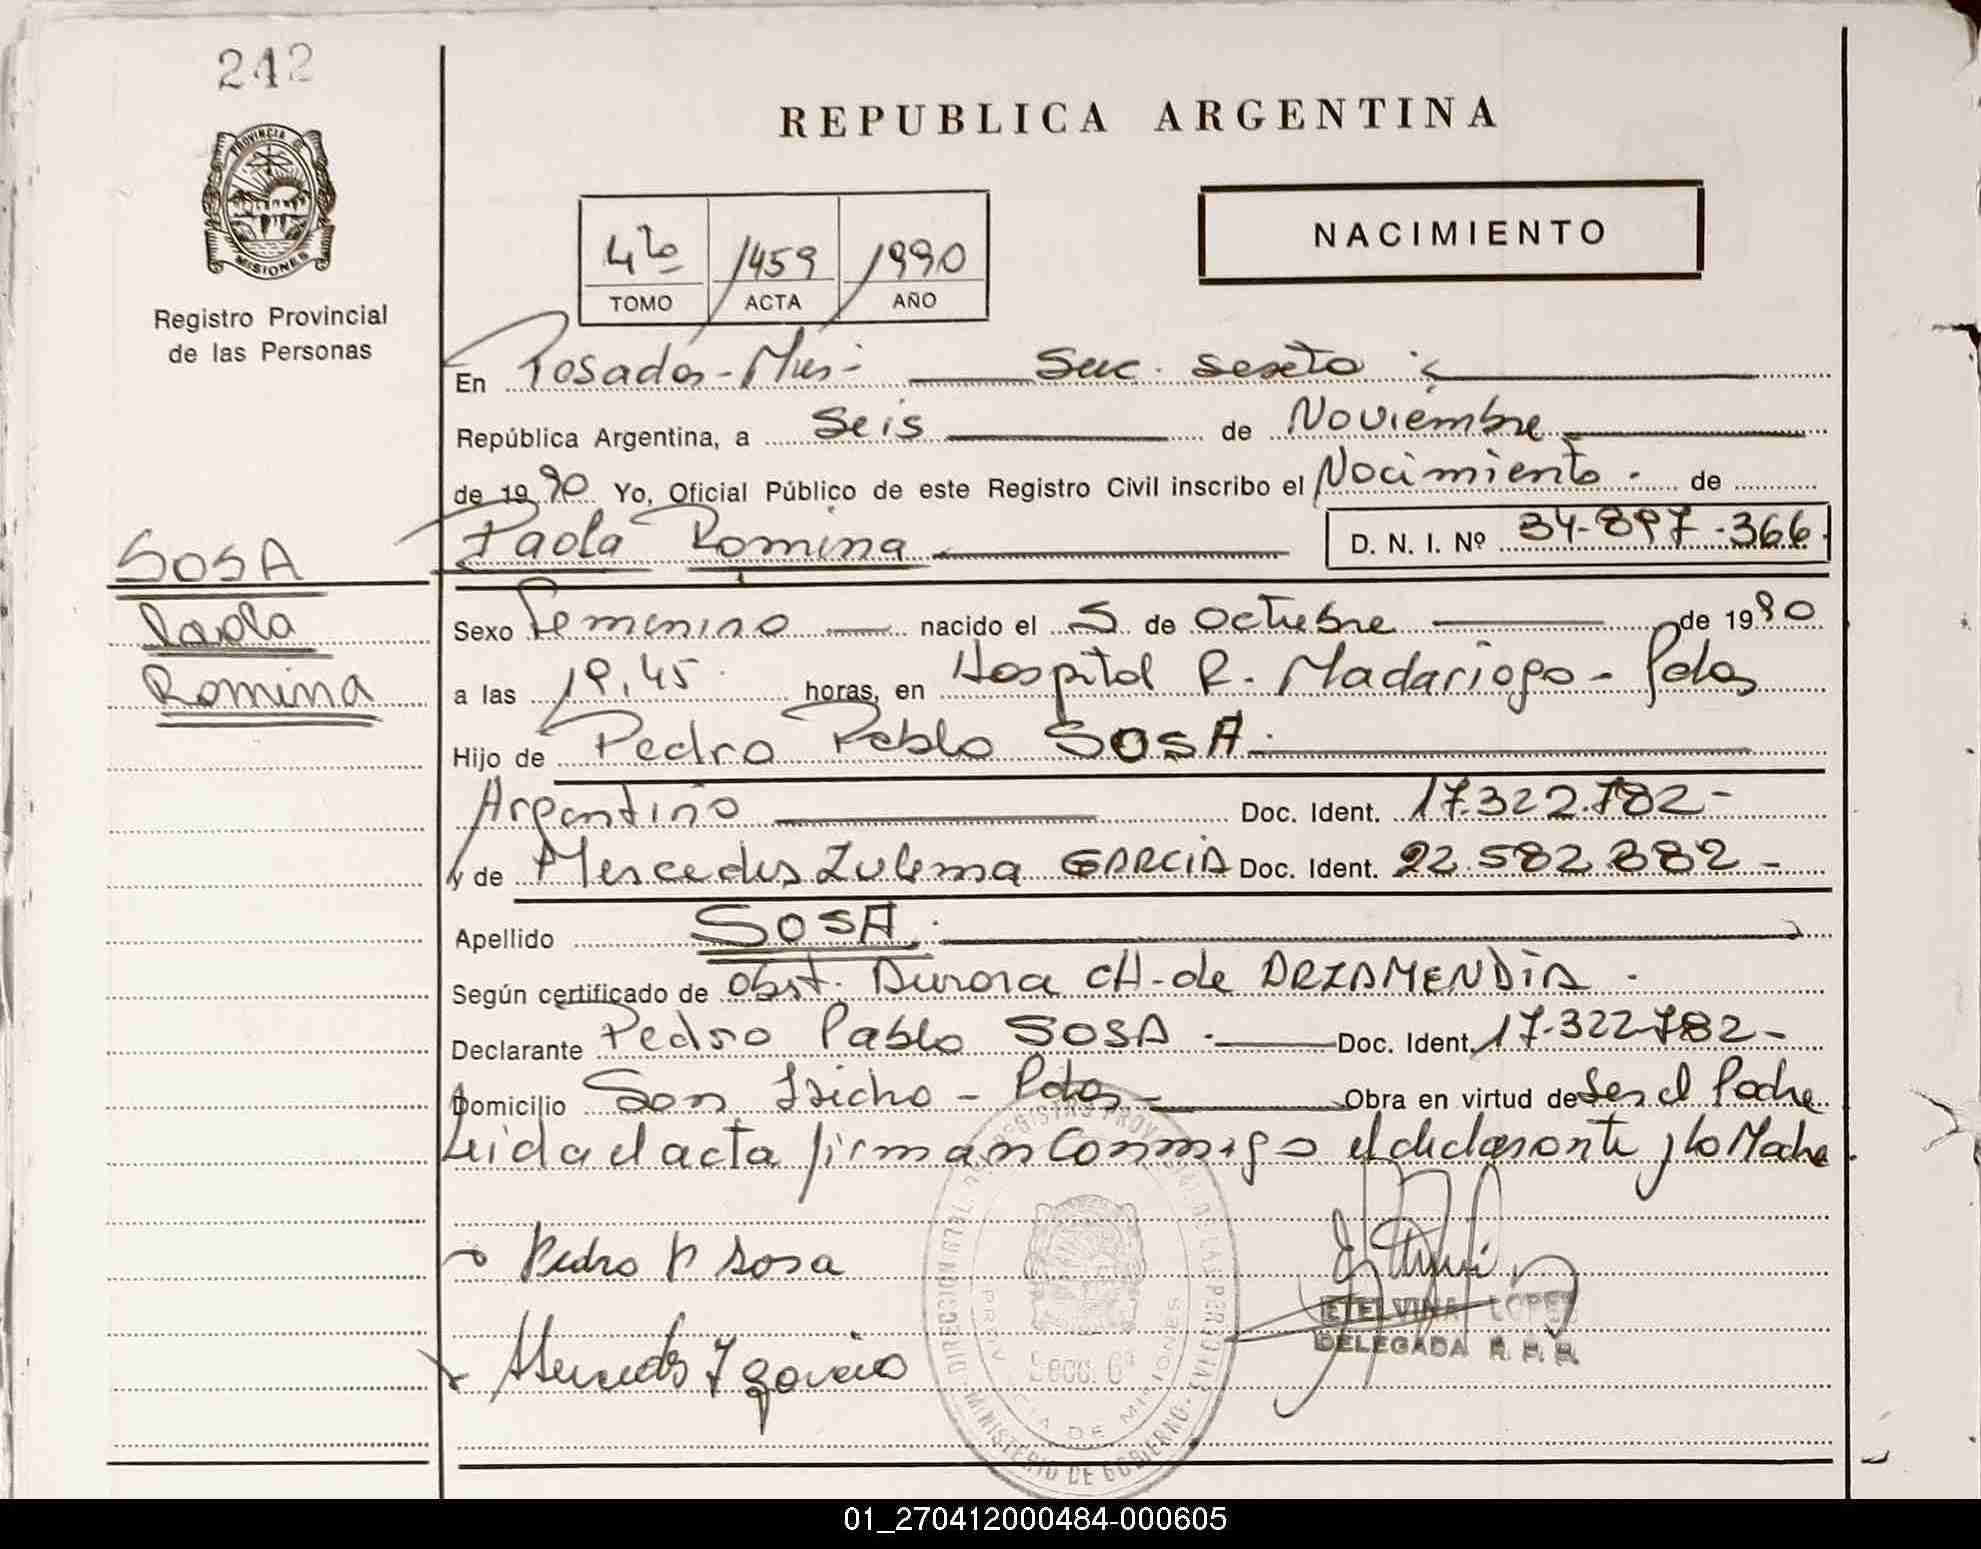 242
REPUBLICA ARGENTINA
PROVINCIA DE
MISIONES
Registro Provincial
de las Personas
4to 1459 1990
TOMO ACTA AÑO
NACIMIENTO
En Posadas - Mnes - Suc. sexta
República Argentina, a Seis de Noviembre
de 1990 Yo, Oficial Público de este Registro Civil inscribo el Nacimiento. de
Paola Romina D. N. I. Nº 34-897-366
SOSA
Paola
Romina
Sexo Femenino nacido el 5 de Octubre de 1990
a las 19,45 horas, en Hospital R. Madariaga - Pdas
Hijo de Pedro Pablo SOSA
Argentino Doc. Ident. 17.322.782-
y de Mercedes Zulema GARCIA Doc. Ident. 22.582.882-
Apellido SOSA
Según certificado de Obst. Aurora CH. de ARZAMENDIA.
Declarante Pedro Pablo SOSA Doc. Ident. 17-322782-
Domicilio San Isidro - Pdas Obra en virtud de Ser el Padre
Leida el acta firman conmigo el declarante y la Madre
Pedro P Sosa
ETELVINA LOPEZ
DELEGADA R. P. P.
Mercedes Z Garcia
Secc. 6ª
PROVINCIA DE MISIONES
MINISTERIO DE GOBIERNO.
01_270412000484-000605